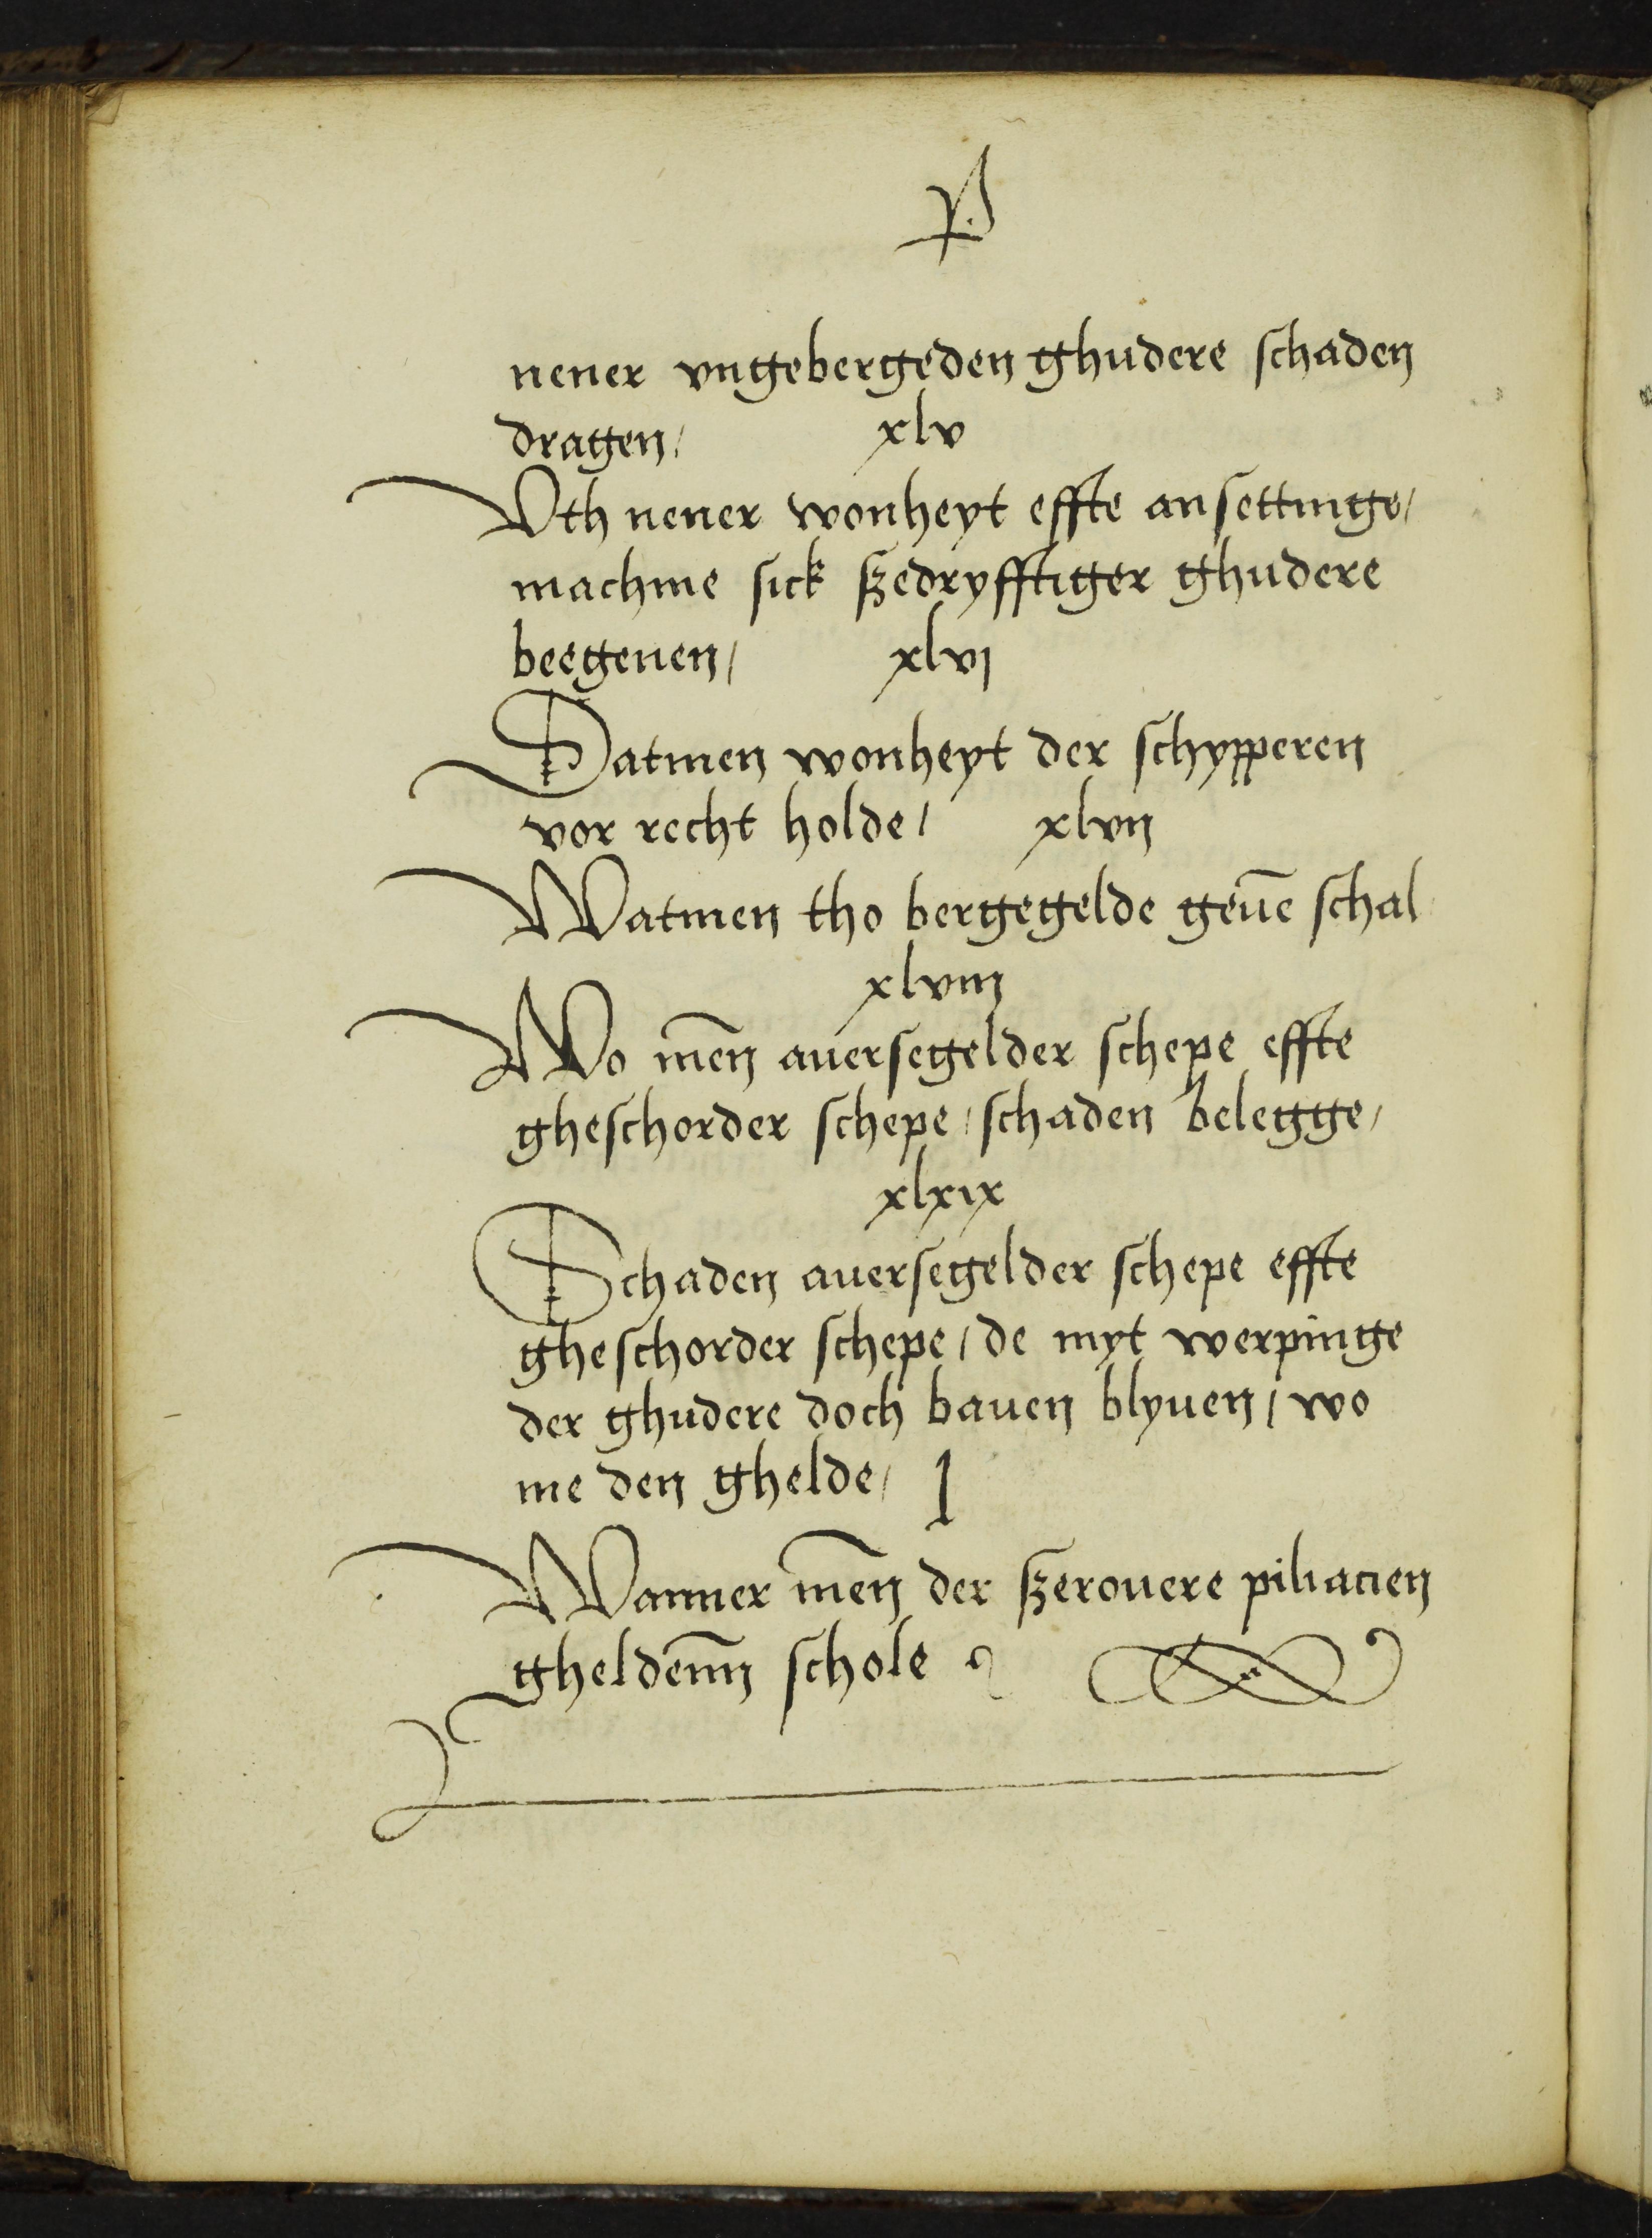 P.
nener vngebergeden ghudere schaden
dragen/ xlv
Vth nener wonheyt effte ansettinge/
machme sick szedryfftiger ghudere
beegenen/ xlvj
Datmen wonheyt der schypperen
vor recht holde/ xlvij
Watmen tho bergegelde geuē schal
xlviij
Wo mēn auersegelder schepe effte
gheschorder schepe/ schaden belegge/
xlxix
Schaden auersegelder schepe effte
gheschorder schepe/ de myt werpinge
der ghudere doch bauen blyuen/ wo
me den ghelde/ l
Wanner mēn der szerouere piliacien
gheldenn̄ schole